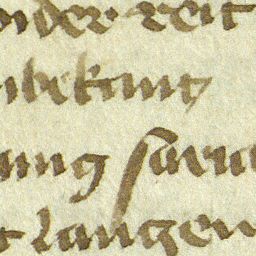 onder zeit
nbekant
ung saru
r langen